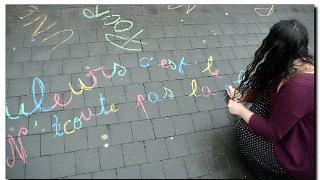 UNE
uleurs c'est le
N'écoute pas la